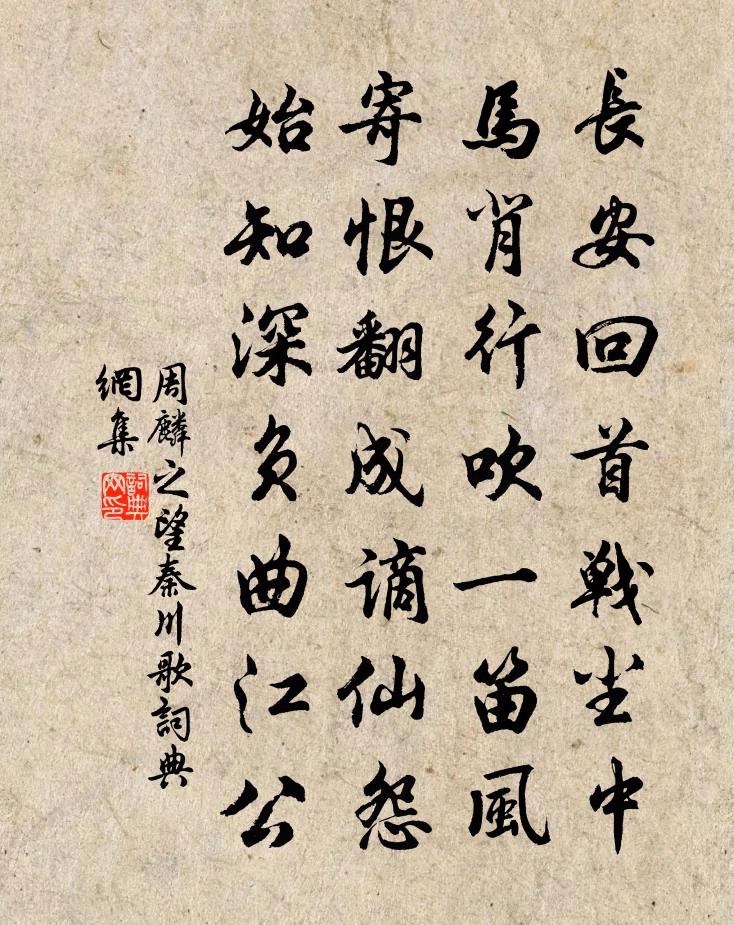 長安回首戦尘中
馬背行吹一笛風
寄恨翻成謫仙怨
始知深负曲江公
周麟之望秦川歌詞典
網集
詞典
网印